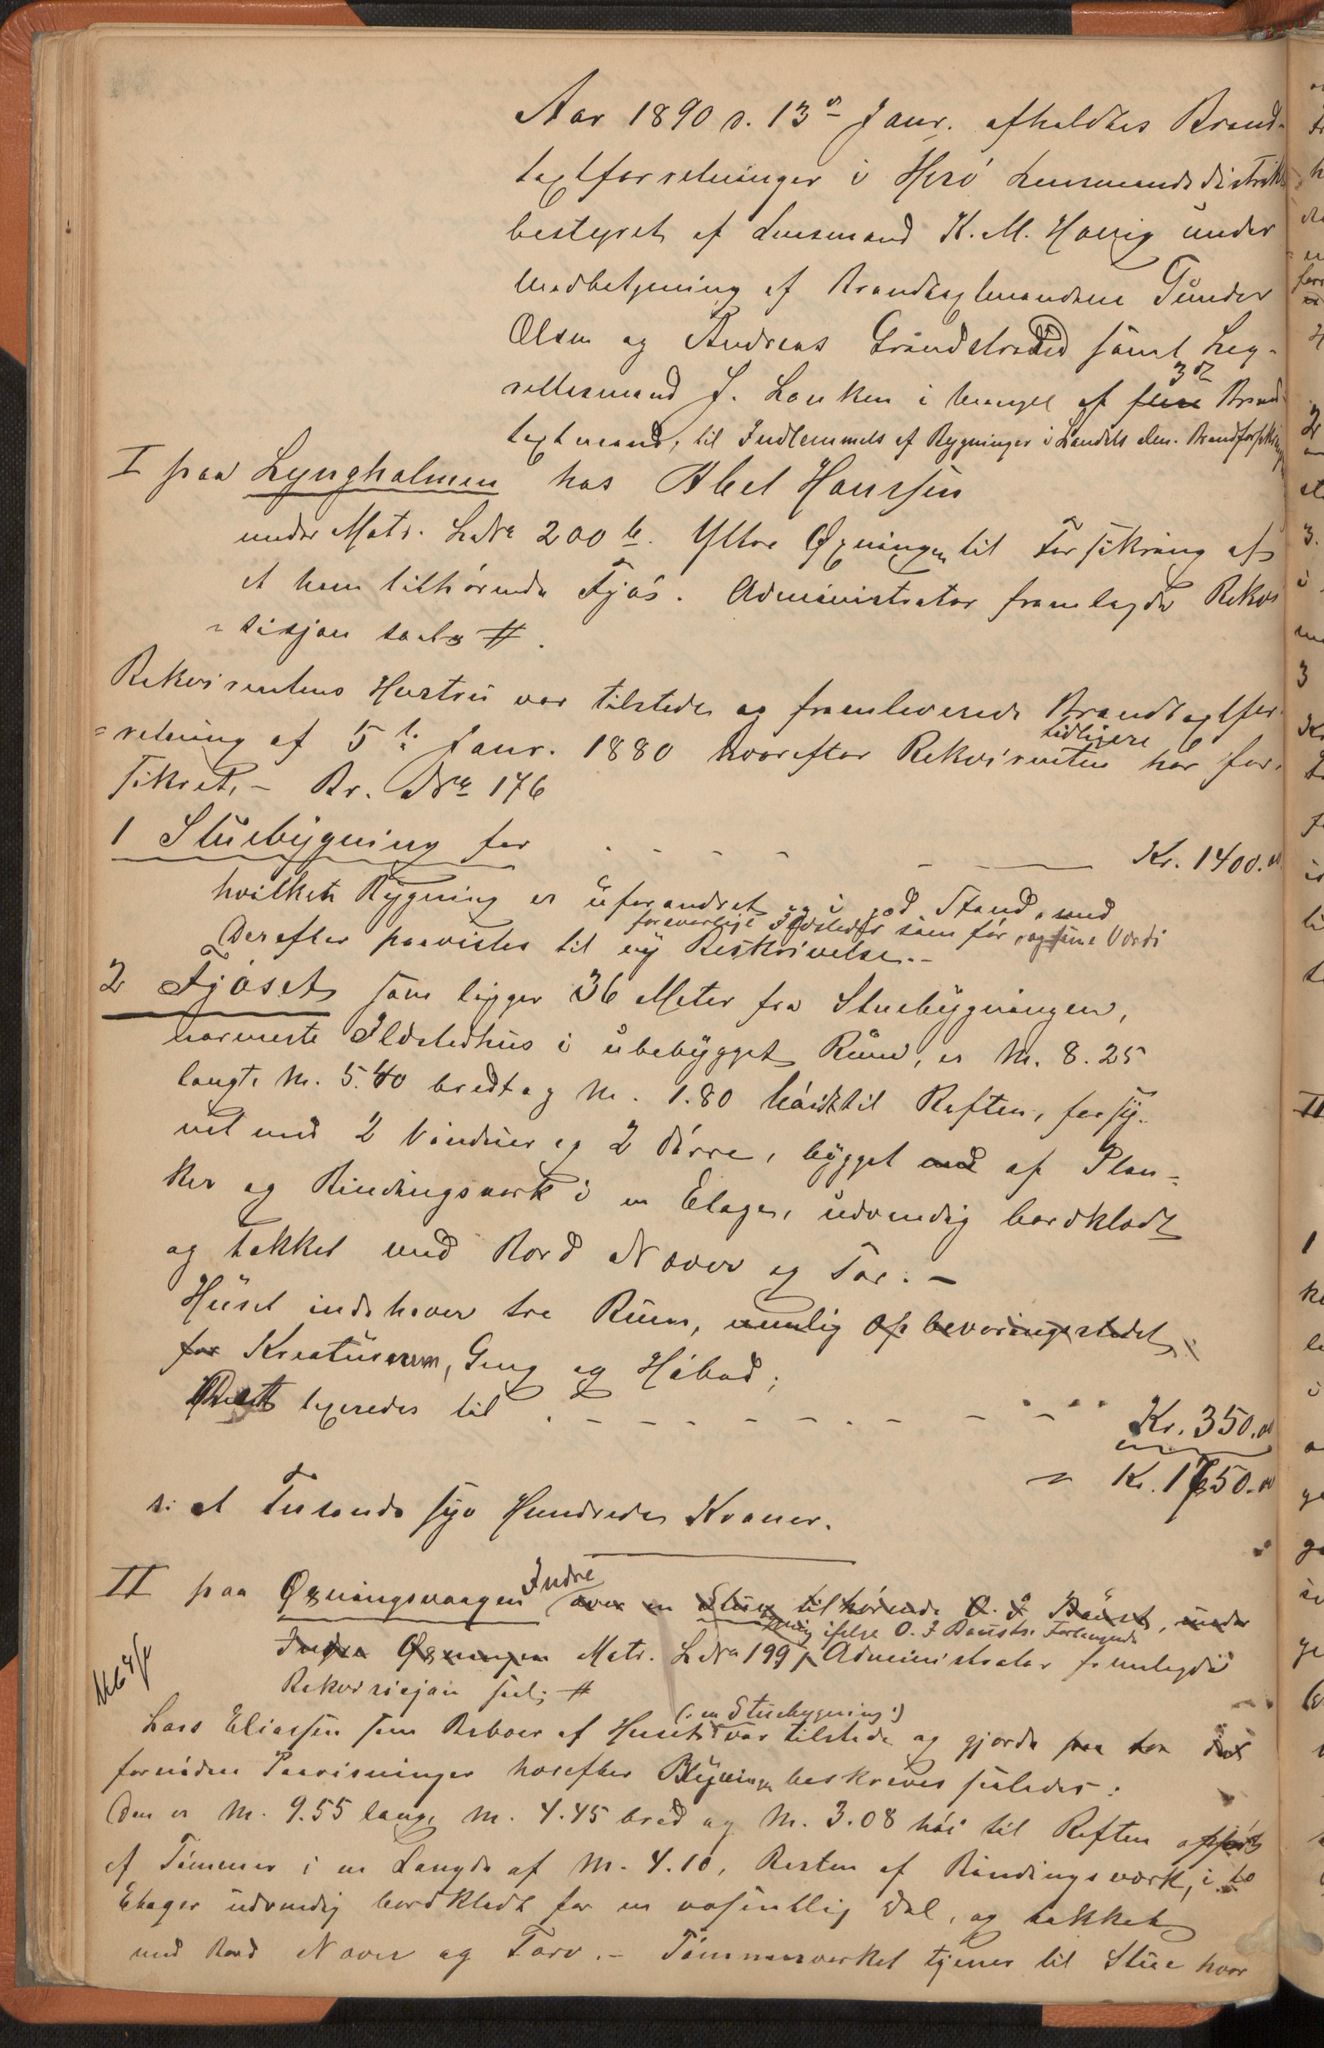 Aar 1890 d. 13de Janr. afholdtes Brand-
taxtforretninger i Herö Lensmandsdistrikt
bestyret af Lensmand K. M. Houig under
Medbetjening af Brandtaxtmændene Tunder
Olsen og Andreas samt Lag-
rettesmand J. Lanken i Mangel af flere 3die Brand
taxtmænd, til Indlemmelse af Bygninger i Landets alm. Brandforsikring
I paa Lyngholmen hos Abel Hanssen
under Matr. L. No 200 b. Yttre Øgningen til Forsikring af
et ham tilhørende Fjøs. Administrator fremlagde Rekvi
=sisjon saal. #.
Rekvirentens Hustru var tilstede og fremleverede Brandtaxtfor-
=retning af 5te Janr. 1880 hvorefter Rekvirenten tidligere har for-
sikret, – Br. No 176
1 Stuebygning for - - - - - Kr. 1400.00
hvilken Bygning er uforandret og i god Stand, med
forsvarlige Ildsteder som før, og sine Værdi
Derefter paavistes til ny Beskrivelse. –
2 Fjøset som ligger 36 Meter fra Stuebygningen,
nærmeste Ildstedhus i ubebygget Rum, er M. 8.25
langt, M. 5.40 bredt og M. 1.80 høidt til Raften, forsy-
net med 2 Vinduer og 2 Dørre, bygget med af Plan-
ker og Bindingsværk i en Etage, udvendig bordklædt
og tækket med Bord Næver og Tor. –
Huset indehaver tre Rum, nemlig Opbevaringsstedet
for Kreaturerne, Gang og Høbod;
taxeredes til - - - - - - - Kr. 350.00
= Kr. 1750.00
s: et Tusende syv Hundrede Kroner.
II paa Øgningsvaagen Indre over en Stue tilhørende O. J. Baust, under
Indre Øgningen Matr. L. No 199 ifølge O. J. Bausts Forlangende Administrator fremlagde
Rekvisisjon saal. #
Lars Eliassen som Beboer af Huset (: en Stuebygning :) var tilstede og gjorde
fornøden Paavisninger hvorefter Bygningen beskreves saaledes:
Den er M. 9.55 lang, M. 4.45 bred og M. 3.08 høi til Raften opført
af Tømmer i en Længde af M. 4.10, Resten af Bindingsværk, i to
Etager udvendig bordklædt for en væsentlig Del, og tækket
med Bord Næver og Torv. – Tømmerværket tjener til Stue hvor